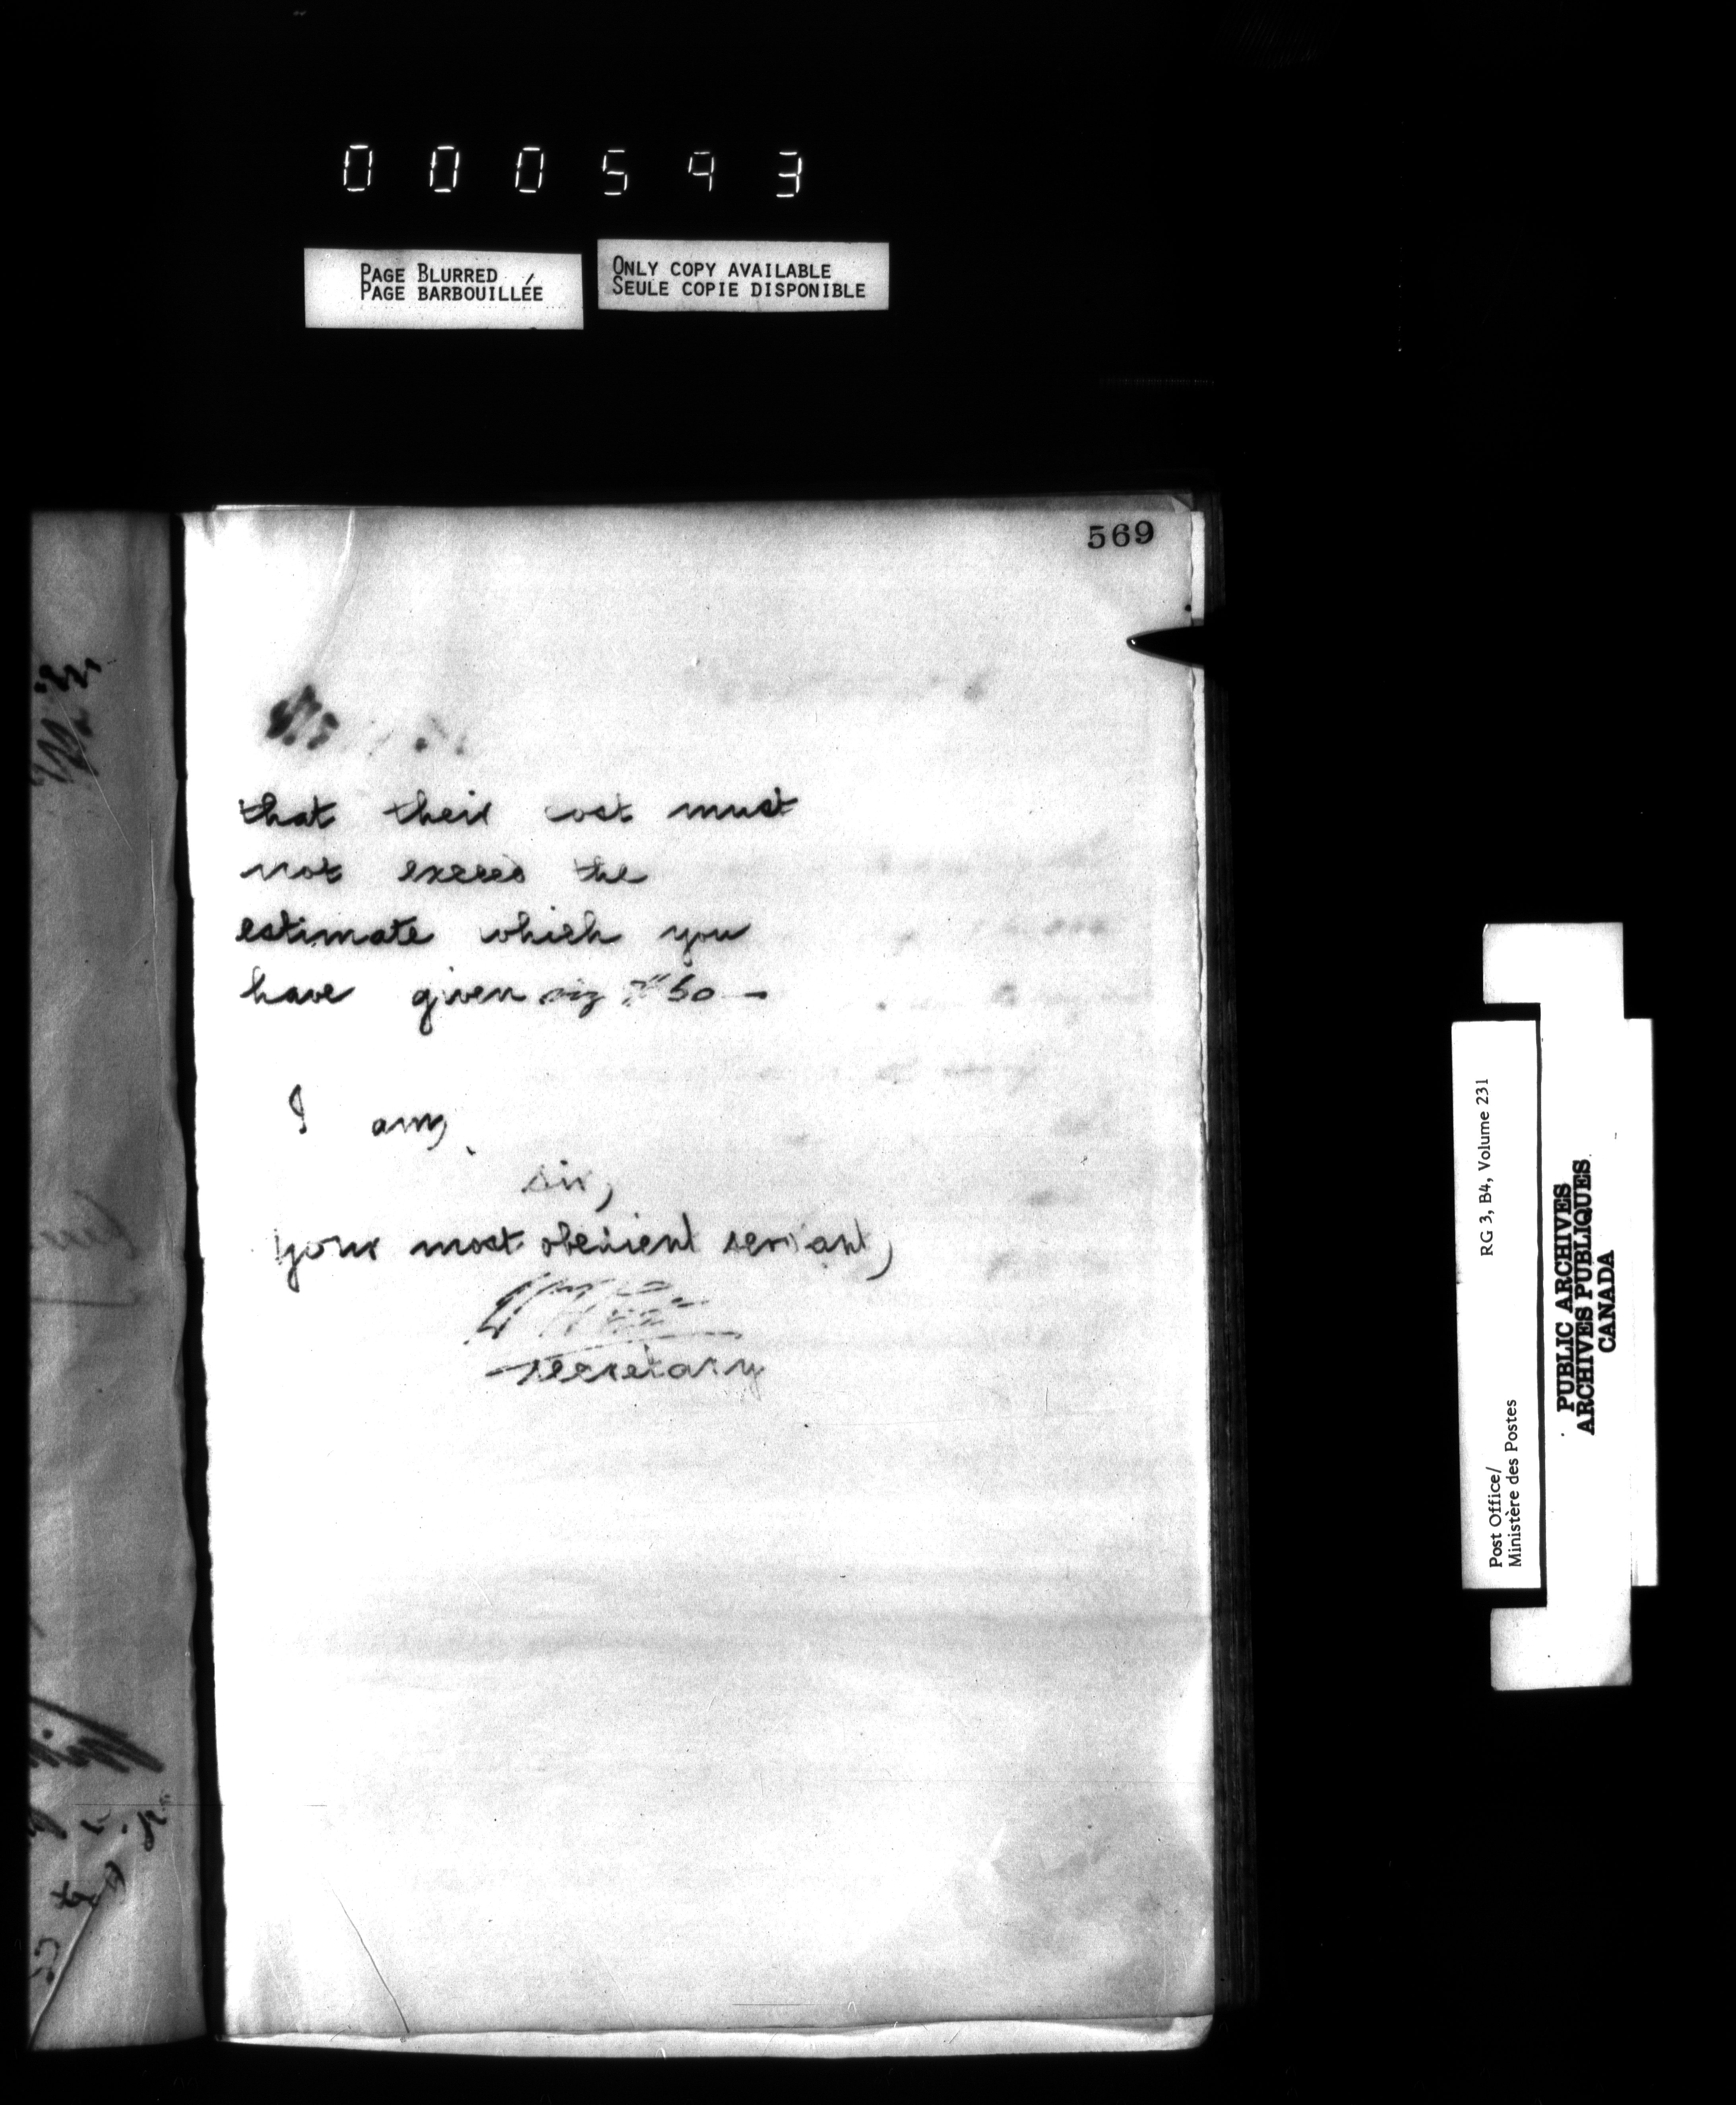 000593
PAGE BLURRED
PAGE BARBOUILLÉE
ONLY COPY AVAILABLE
SEULE COPIE DISPONIBLE
569
that their cost must
not exceed the
estimate which you
have given viz $50 —
I am,
sir,
your most obedient servant,
secretary
Post Office/
Ministère des Postes
RG 3, B4, Volume 231
PUBLIC ARCHIVES
ARCHIVES PUBLIQUES
CANADA